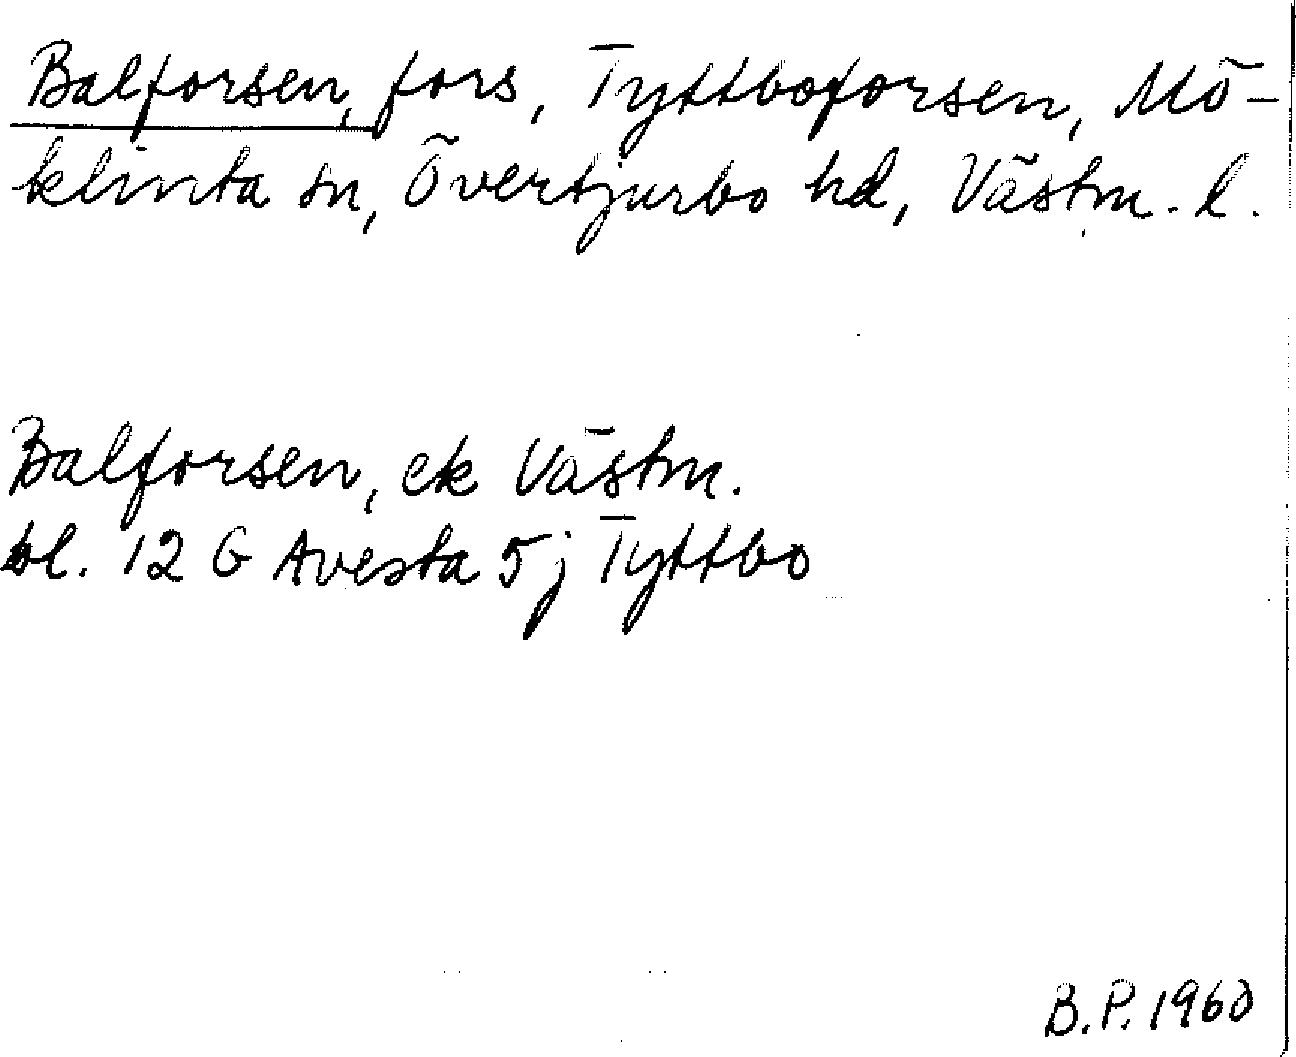 Balforsen, fors, Tyttboforsen, Mö-
klinta sn, Övertjurbo hd, Västm. l.
Balforsen, ek Västm.
bl. 12 G Avesta 5 j Tyttbo
B.P. 1960